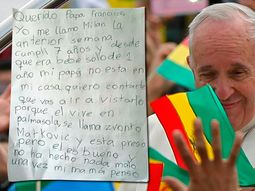 Querido Papa Francisco
Yo me llamo Milan la
anterior semana
cumpli 7 años y desde
que era bebe solo de 1
año mi papá no esta en
mi casa, quiero contarte
que vas a ir a visitarlo
porque el vive en
palmasola, se llama zvonko
Matkovic y esta preso
pero el es bueno y
no ha hecho nada malo
una vez mi mamá penso